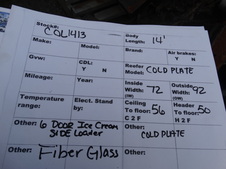 Stock#: COL1413
Body Length: 14'
Make: Model: Brand: Air brakes: Y N
Gvw: CDL: Y N Reefer Model: COLD PLATE
Mileage: Year: Inside Width: 72 Outside Width: 92
Temperature range: Elect. Stand by: Ceiling To floor: 56 Header To floor: 50
C 2 F H 2 F
Other: 6 DOOR Ice Cream SIDE Loader Other: COLD PLATE
Other: FiberGlass Other: